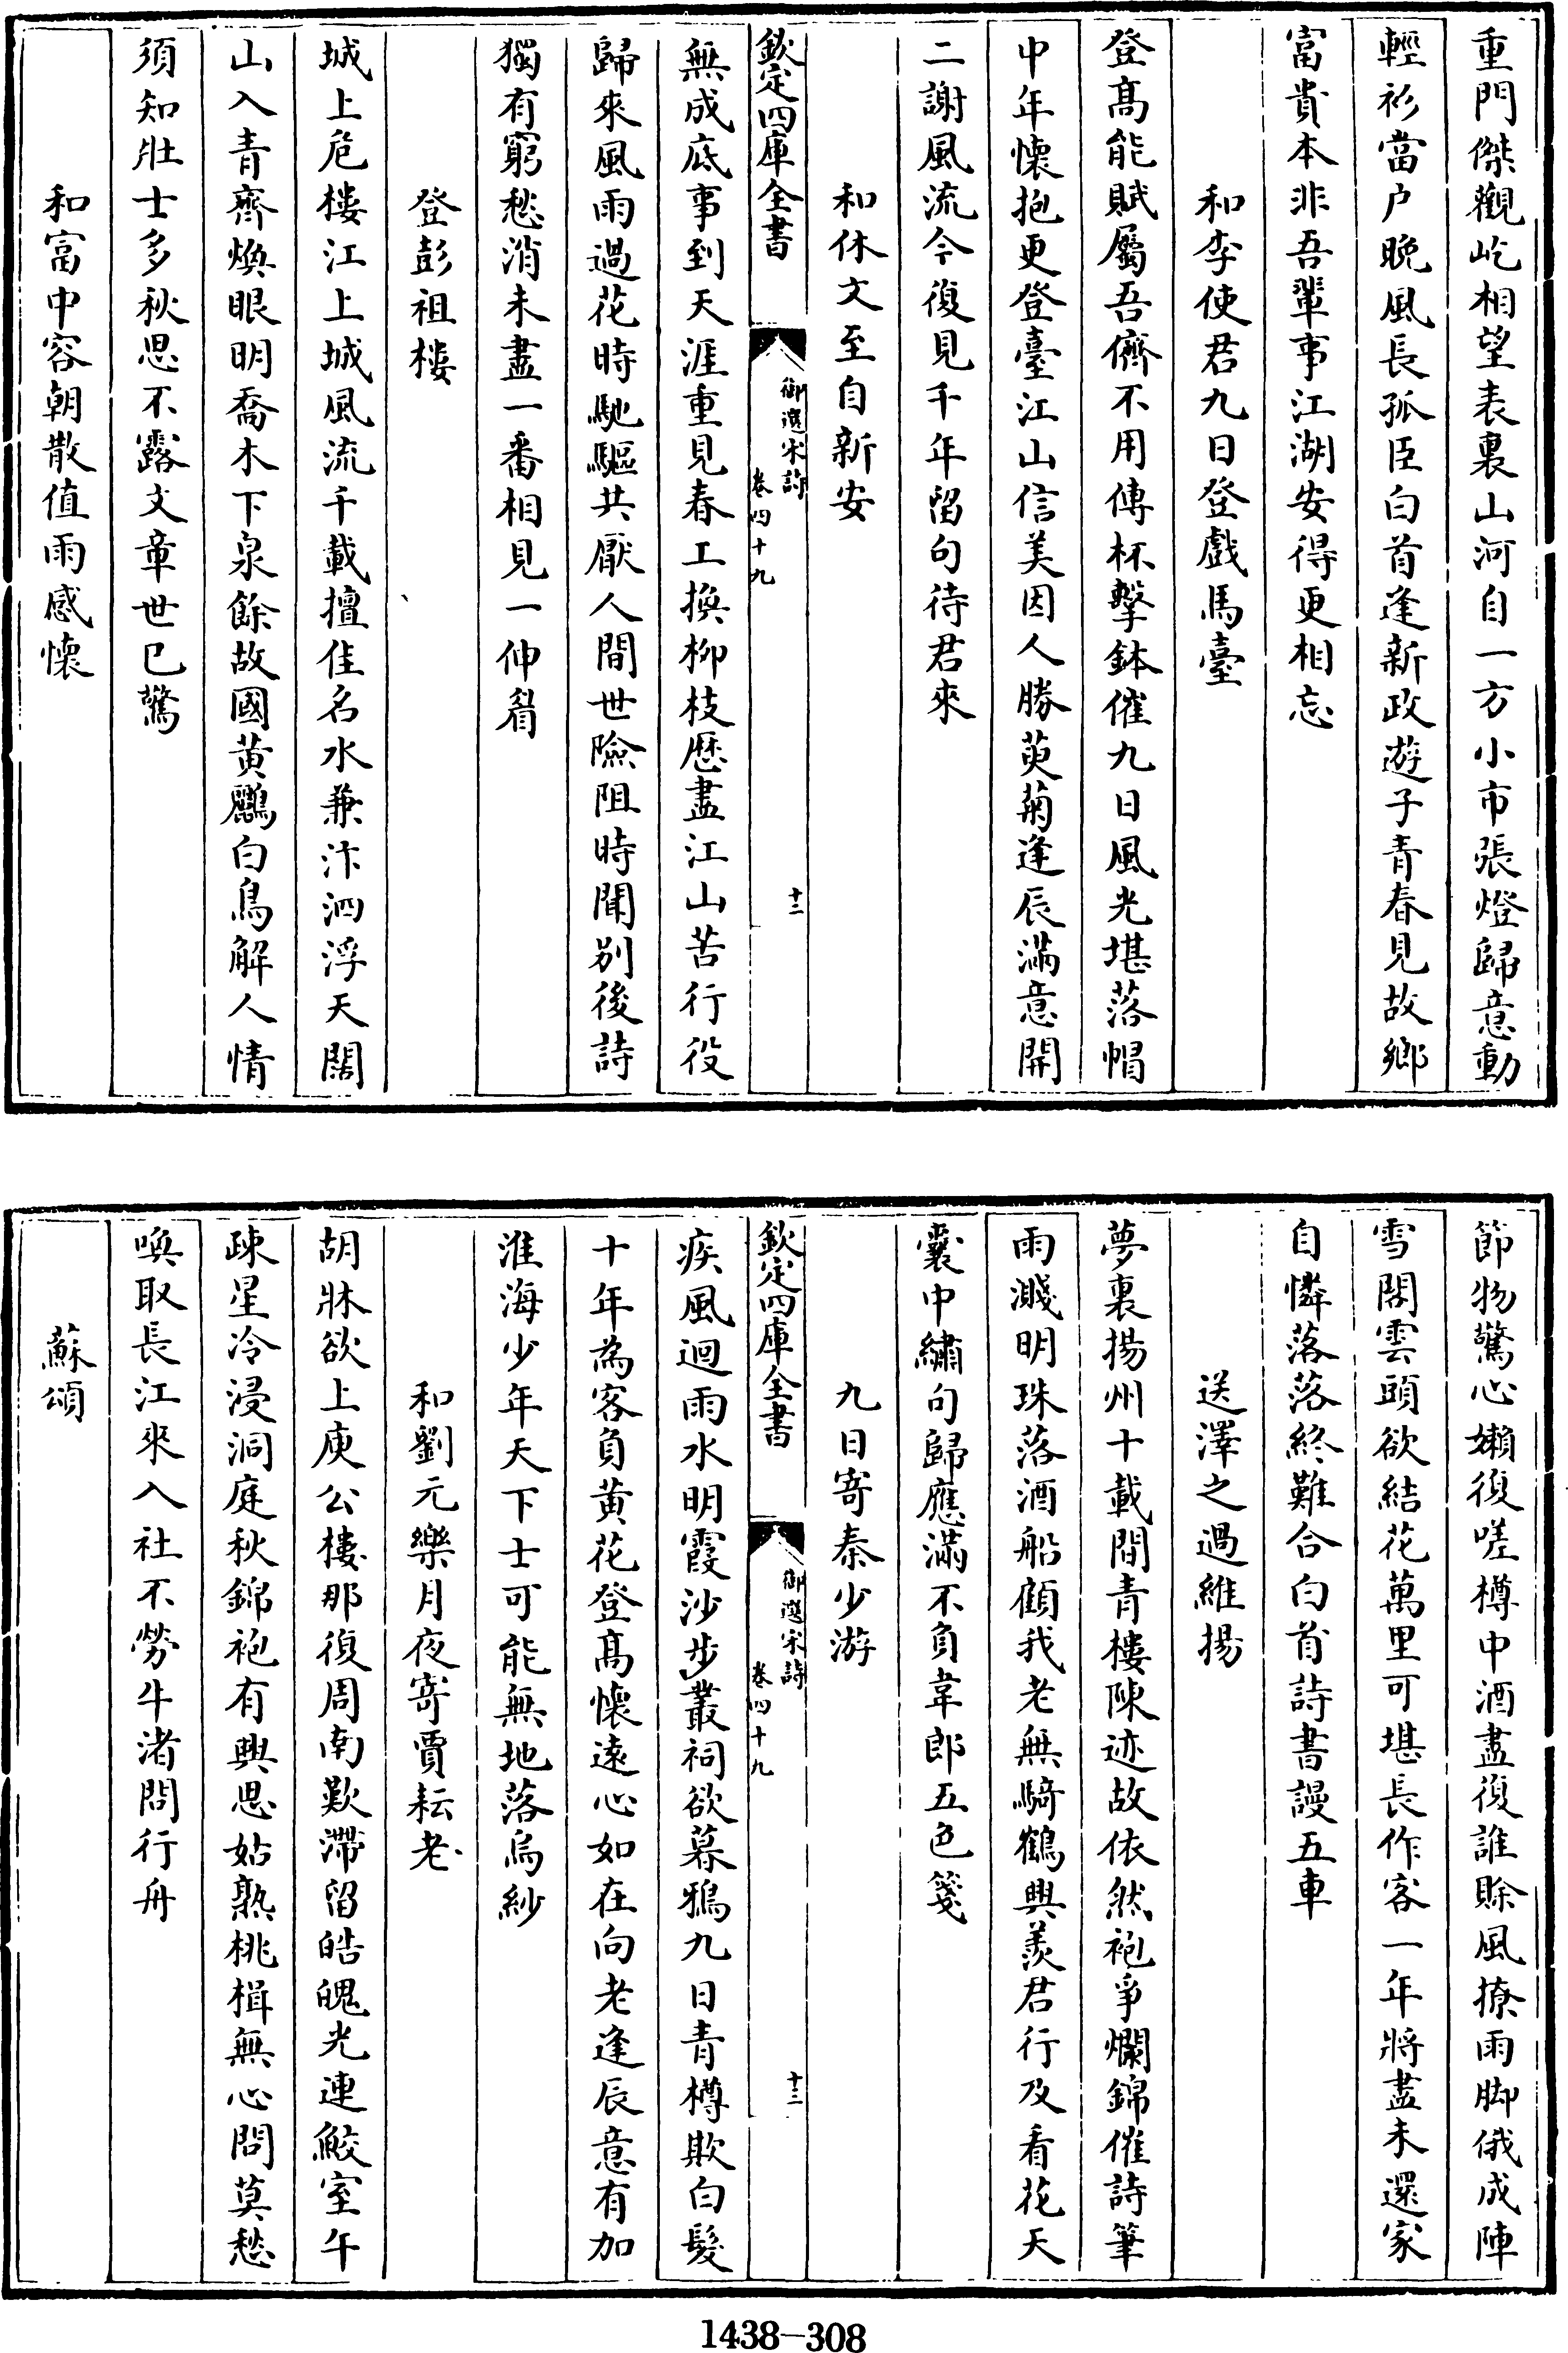 重門傑觀屹相望表裏山河自一方小市張燈歸意動
輕衫當户晚風長孤臣白首逢新政遊子青春見故鄉
富貴本非吾輩事江湖安得更相忘
和李使君九日登戲馬臺
登髙能賦屬吾儕不用傳杯擊鉢催九日風光堪落帽
中年懷抱更登臺江山信美因人勝萸菊逢辰滿意開
二謝風流今復見千年留句待君來
和休文至自新安
欽定四庫全書
御選宋詩
卷四十九
十二
無成底事到天涯重見春工換柳枝歴盡江山苦行役
歸來風雨過花時馳驅共厭人間世險阻時聞别後詩
獨有窮愁消未盡一番相見一伸眉
登彭祖樓
城上危樓江上城風流千載擅佳名水兼汴泗浮天闊
山入青齊煥眼明喬木下泉餘故國黄鸝白鳥解人情
須知壯士多秋思不露文章世已驚
和富中容朝散值雨感懷
節物驚心嬾復嗟樽中酒盡復誰賒風撩雨脚俄成陣
雪閣雲頭欲結花萬里可堪長作客一年將盡未還家
自憐落落終難合白首詩書謾五車
送澤之過維揚
夢裏揚州十載間青樓陳迹故依然袍爭爛錦催詩筆
雨濺明珠落酒船顧我老無騎鶴興羨君行及看花天
囊中繡句歸應滿不負韋郎五色箋
九日寄秦少游
欽定四庫全書
御選宋詩
卷四十九
十三
疾風迴雨水明霞沙步叢祠欲暮鴉九日青樽欺白髮
十年為客負黄花登髙懷遠心如在向老逢辰意有加
淮海少年天下士可能無地落烏紗
和劉元樂月夜寄賈耘老
胡牀欲上庾公樓那復周南歎滯留皓魄光連鮫室午
疎星冷浸洞庭秋錦袍有興思姑熟桃楫無心問莫愁
喚取長江來入社不勞牛渚問行舟
蘇頌
1438-308